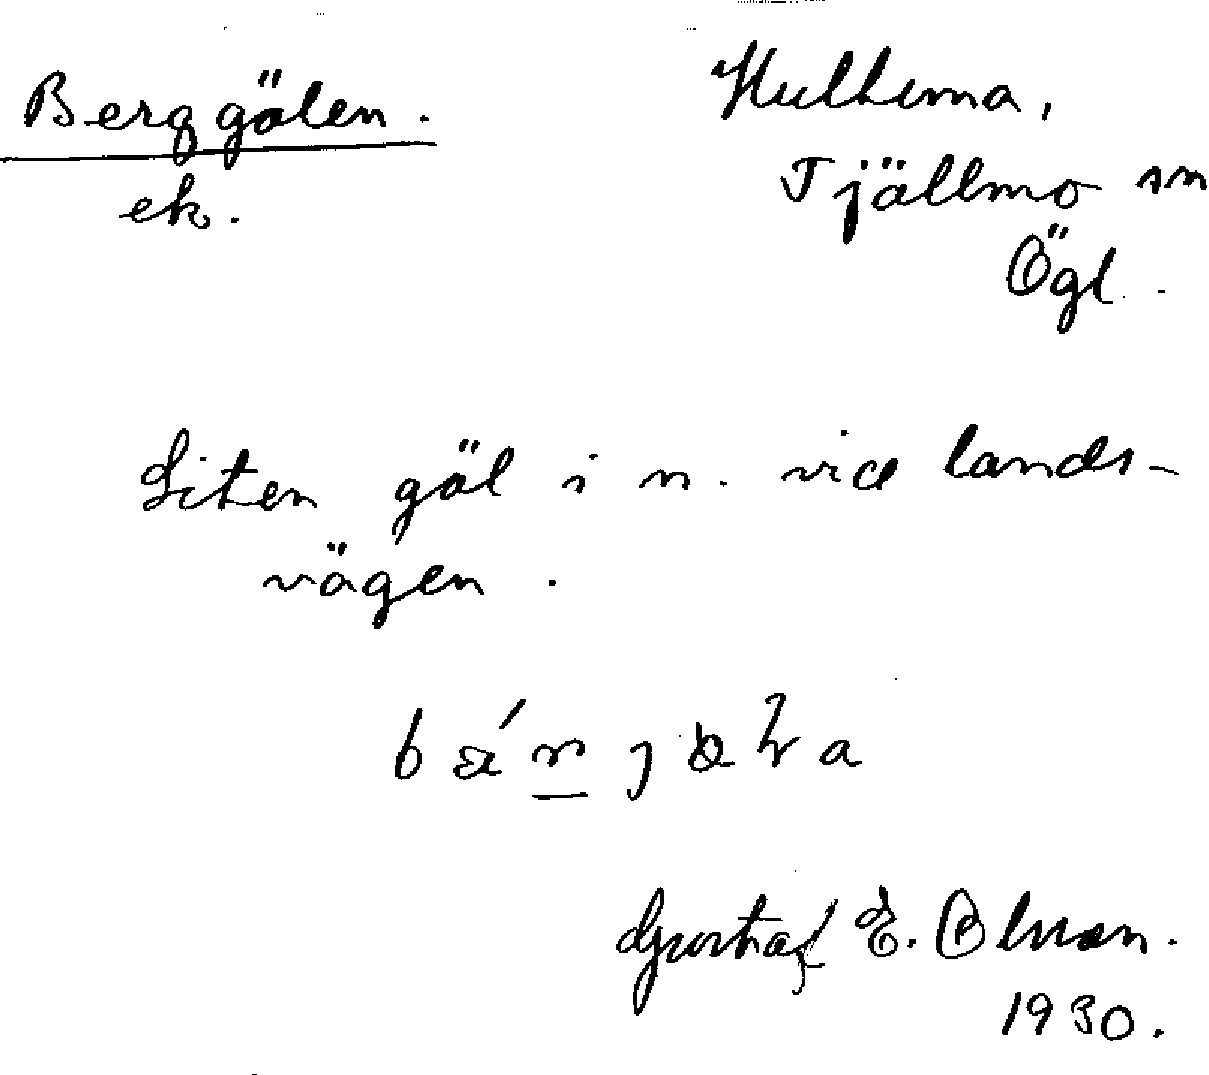 Berggölen.
ek.
Hulhema,
Tjällmo sn
Ögl.
Liten göl i n. vid lands-
vägen.
Gustaf E. Olsson.
1930.